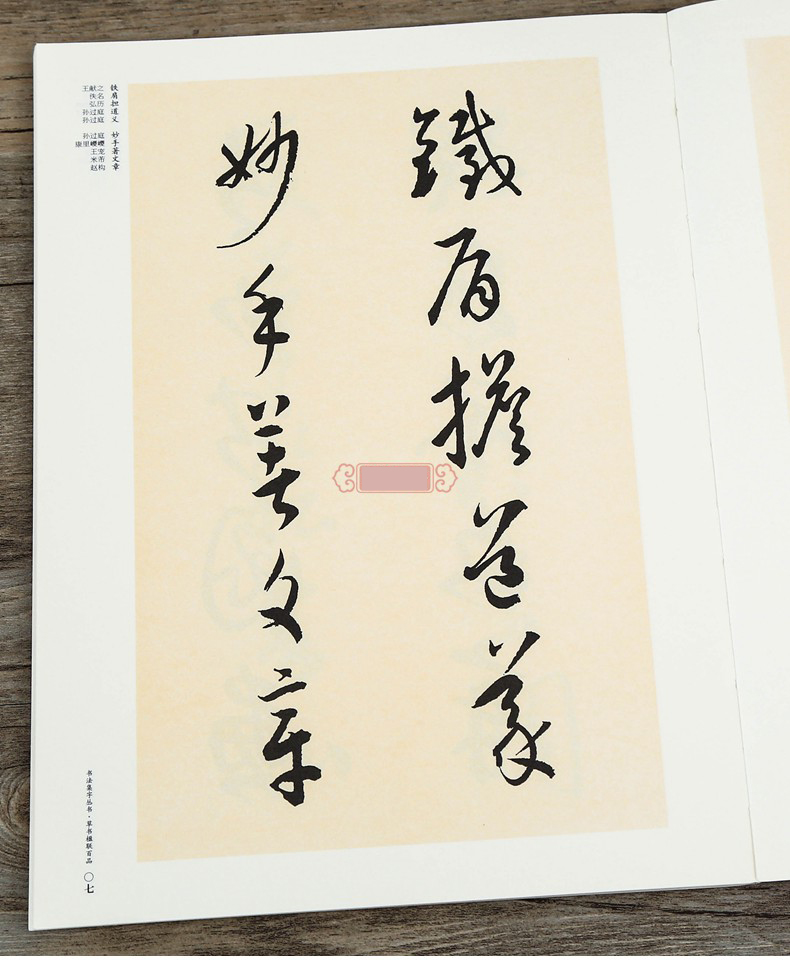 鐵肩擔道義
妙手著文章
铁肩担道义 妙手著文章
王献之
佚名
弘历
孙过庭
孙过庭
孙过庭
康里巎巎
王宠
米芾
赵构
书法集字丛书·草书楹联百品
〇七